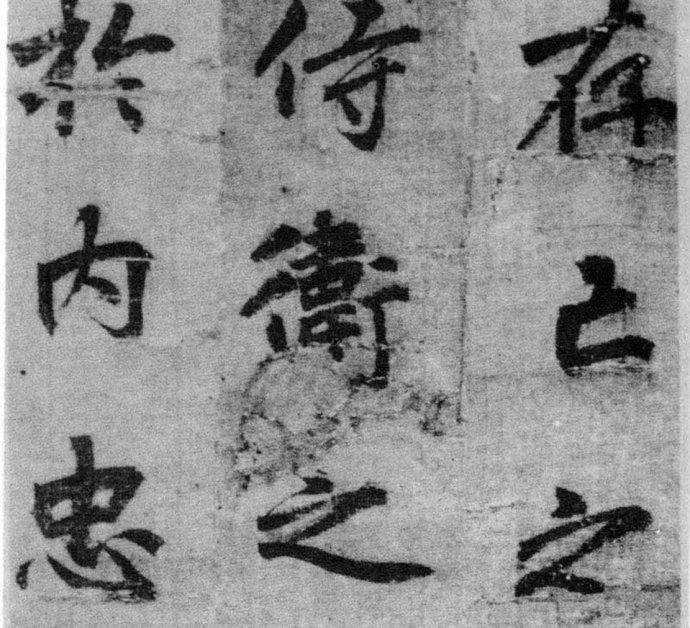 存亡之
侍衛之
於內忠